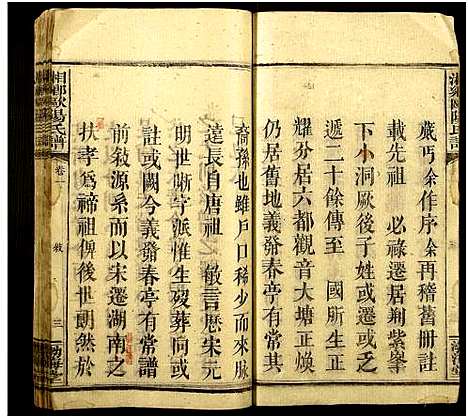 湘鄉歐陽氏譜
歲丐余作序余再稽舊冊註
載先祖 必祿遷居翔紫峯
下小洞厥後子姓或遷或
遞二十餘傳至 國所生正
耀分居六都觀音大塘正煥
仍居舊地義發春亭有常
裔孫也雖戶口稀少而來脉
遠長自唐祖 敏言歷宋元
明皆以字派惟生娶葬同或
或闕今義發春亭有常譜
前敘源系而以宋遷湖南之
扶孝為禘祖俾後世朗然於
湘鄉歐陽氏譜
卷一
敘
三